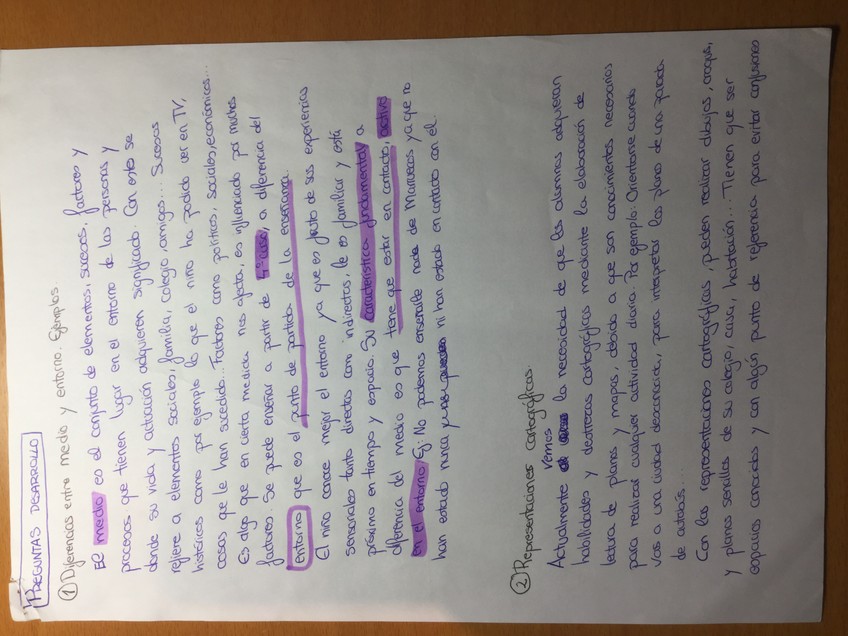 PREGUNTAS DESARROLLO
① Diferencias entre medio y entorno. Ejemplos.
El medio es el conjunto de elementos, sucesos, factores y
procesos que tienen lugar en el entorno de las personas y
donde su vida y actuación adquieren significado. Con esto se
refiere a elementos sociales, familia, colegio, amigos... Sucesos
históricos como por ejemplo lo que el niño ha podido ver en TV,
cosas que le han sucedido... Factores como políticos, sociales, económicos...
Es algo que en cierta medida nos afecta, es influenciado por muchos
factores. Se puede enseñar a partir de 4º curso, a diferencia del
entorno que es el punto de partida de la enseñanza.
El niño conoce mejor el entorno ya que es fruto de sus experiencias
semanales tanto directas como indirectas, le es familiar y está
próximo en tiempo y espacio. Su característica fundamental a
diferencia del medio es que tiene que estar en contacto activo
en el entorno Ej: No podemos enseñarle nada de Marruecos ya que no
han estado nunca ni han estado en contacto con él.
② Representaciones Cartográficas.
Actualmente vemos la necesidad de que los alumnos adquieran
habilidades y destrezas cartográficas mediante la elaboración de
lectura de planos y mapas, debido a que son conocimientos necesarios
para realizar cualquier actividad diaria. Por ejemplo: Orientarte cuando
vas a una ciudad desconocida, para interpretar los plano de una parada
de autobús...
Con las representaciones cartográficas, pueden realizar dibujos, croquis,
y planos sencillos de su colegio, casa, habitación... Tienen que ser
espacios conocidos y con algún punto de referencia para evitar confusiones